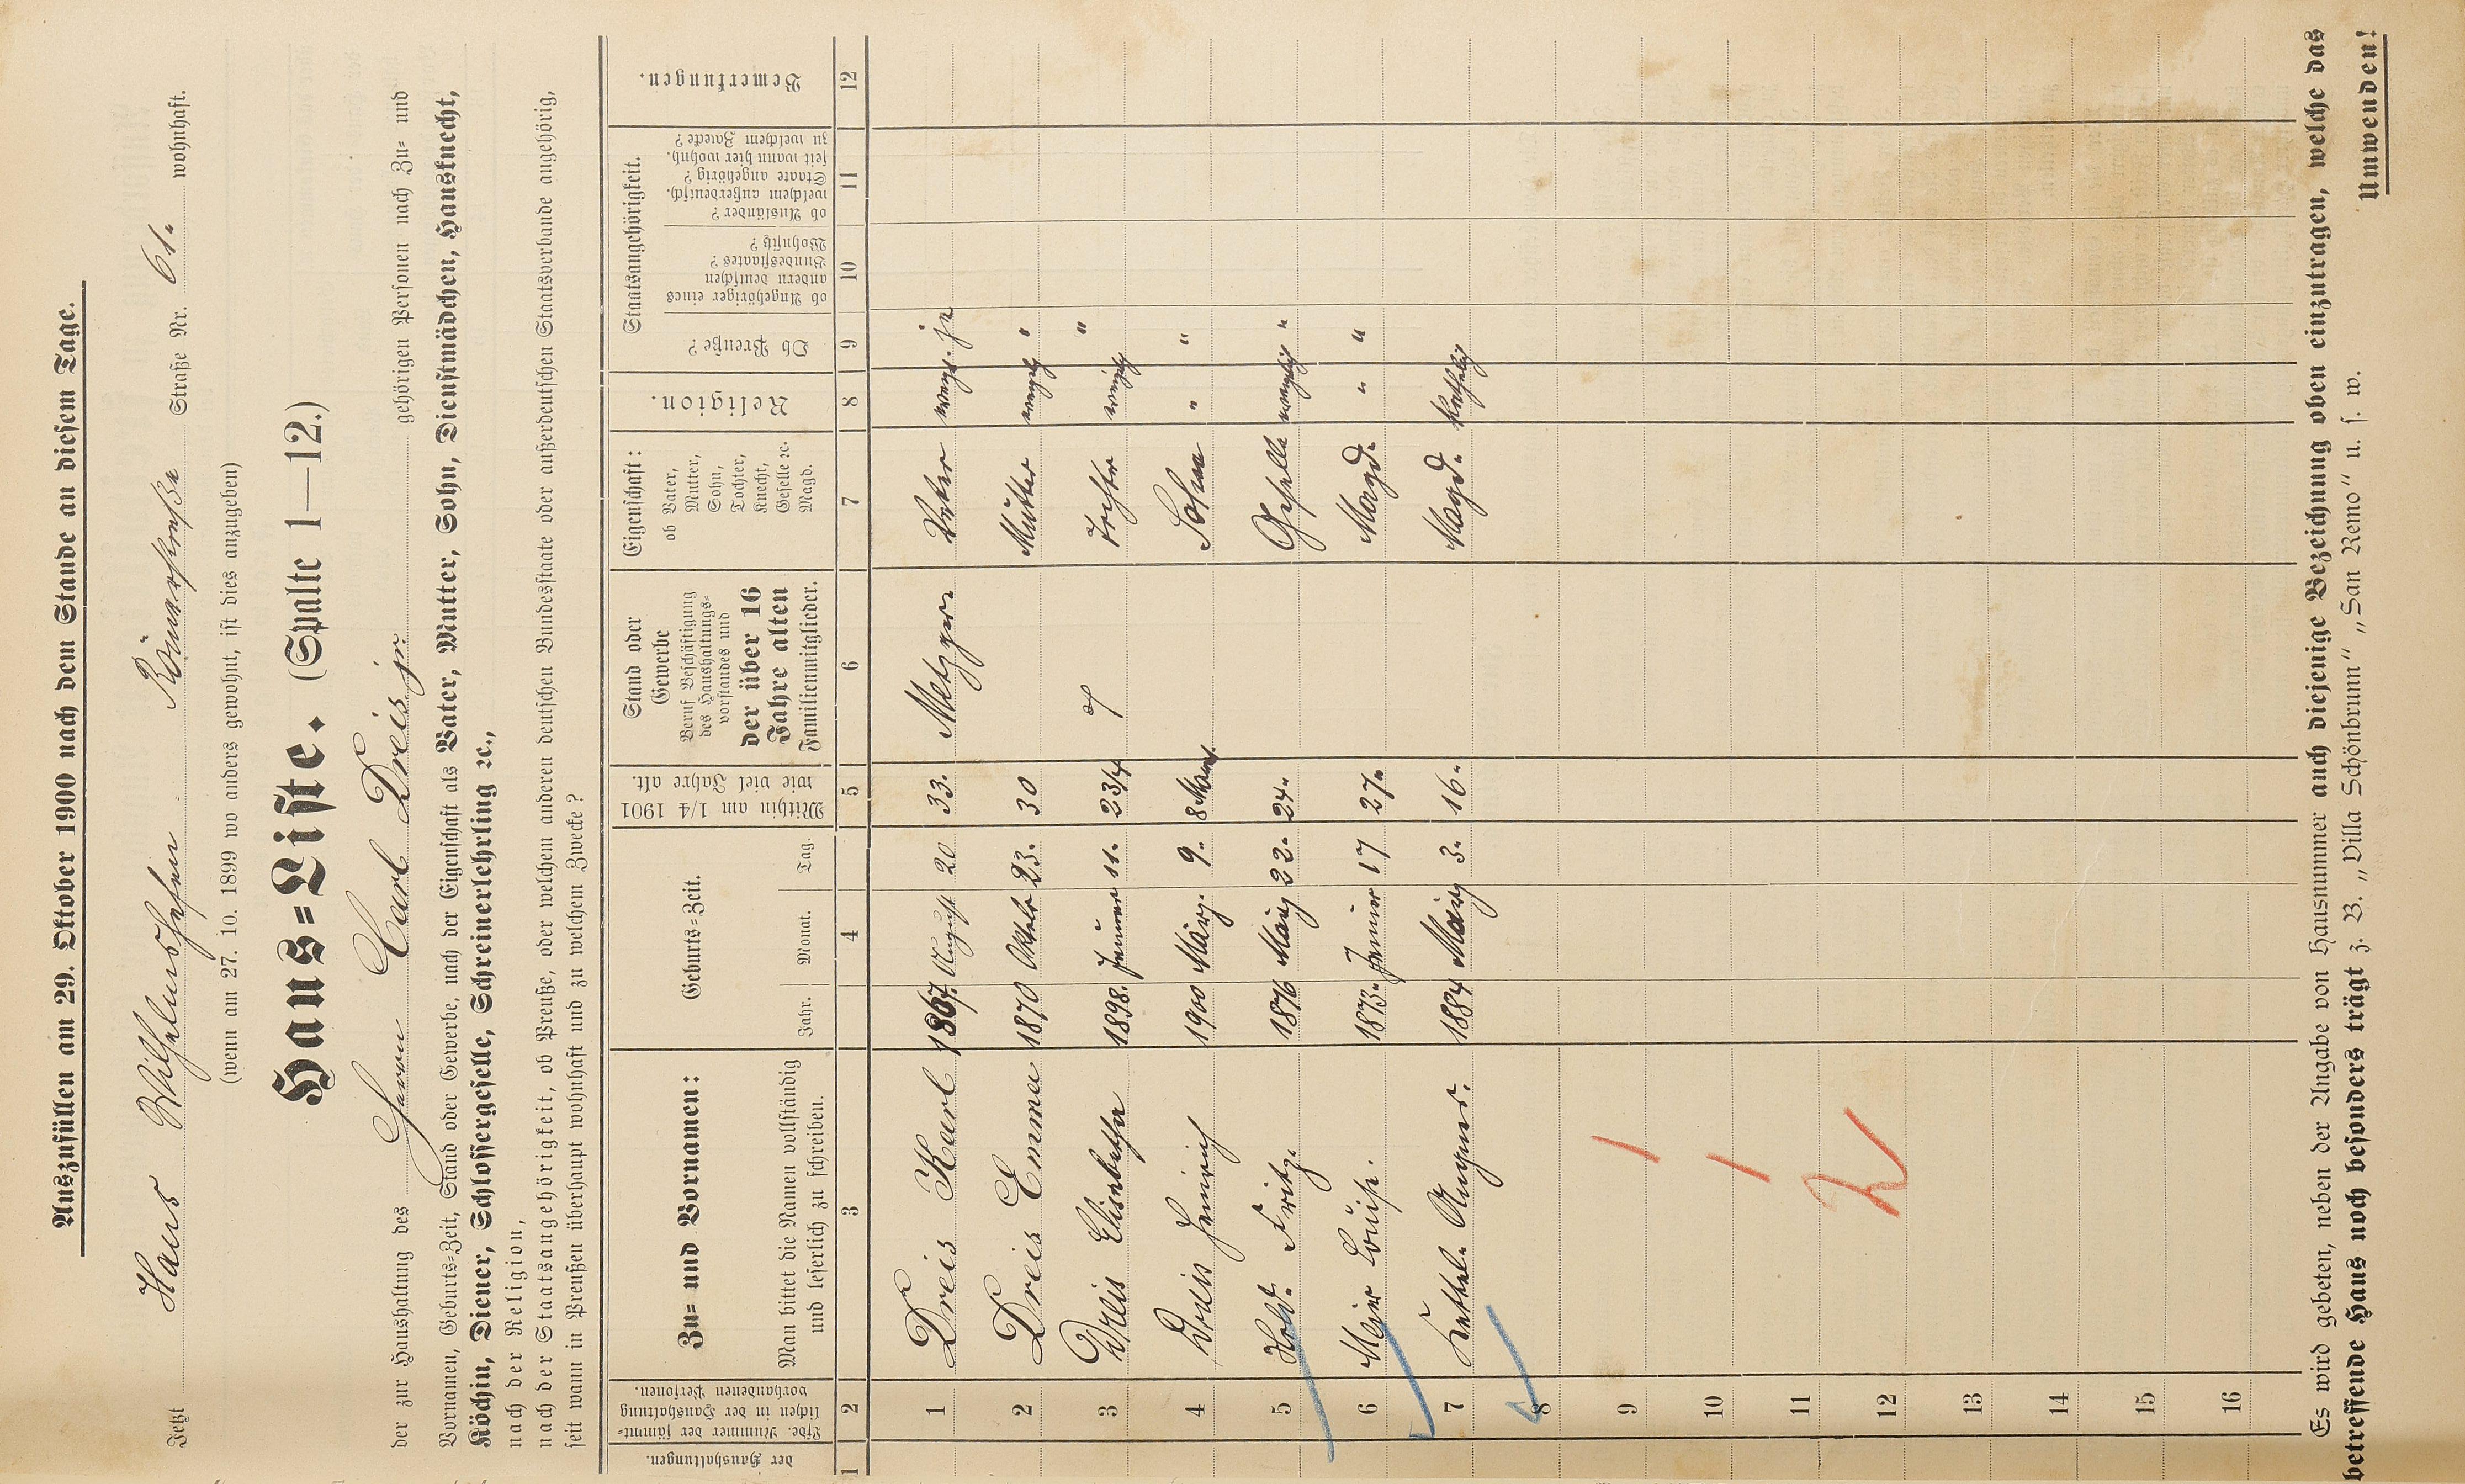 Auszufüllen am 29. Oktober 1900 nach dem Stande an diesem Tage.
Jetzt Haus Wilhelmshofen Römerstraße Straße Nr. 61. wohnhaft.
(wenn am 27. 10. 1899 wo anders gewohnt, ist dies anzugeben)
Haus=Liste. (Spalte 1—12.)
der zur Haushaltung des Herrn Carl Dreis jr. gehörigen Personen nach Zu= und
Vornamen, Geburts=Zeit, Stand oder Gewerbe, nach der Eigenschaft als Vater, Mutter, Sohn, Dienstmädchen, Hausknecht,
Köchin, Diener, Schlossergeselle, Schreinerlehrling ꝛc.,
nach der Religion,
nach der Staatsangehörigkeit, ob Preuße, oder welchem anderen deutschen Bundesstaate oder außerdeutschen Staatsverbande angehörig,
seit wann in Preußen überhaupt wohnhaft und zu welchem Zwecke?
der Haushaltungen.
Lfde. Nummer der sämmt=
lichen in der Haushaltung
vorhandenen Personen.
Zu= und Vornamen:
Man bittet die Namen vollständig
und leserlich zu schreiben.
Geburts=Zeit.
Jahr. Monat. Tag.
Mithin am 1/4 1901
wie viel Jahre alt.
Stand oder
Gewerbe
Beruf Beschäftigung
des Haushaltungs=
vorstandes und
der über 16
Jahre alten
Familienmitglieder.
Eigenschaft:
ob Vater,
Mutter,
Sohn,
Tochter,
Knecht,
Geselle ꝛc.
Magd.
Religion.
Staatsangehörigkeit.
Ob Preuße?
ob Angehöriger eines
andern deutschen
Bundesstaates?
Wohnsitz?
ob Ausländer?
welchem außerdeutsch.
Staate angehörig?
seit wann hier wohnh.
zu welchem Zwecke?
Bemerkungen.
1 2 3 4 5 6 7 8 9 10 11 12
1 Dreis Karl 1867. August 20 33. Metzger Vater evngl. ja
2 Dreis Emma 1870 Oktobr 23. 30 Mutter evngel "
3 Dreis Elisabetha 1898. Januar 11. 2 3/4 Tochter evngel "
4 Dreis Heinrich 1900 März. 9. 8 Mont. Sohn " "
5 Held. Fritz. 1876 März 22. 24. Geselle evnglis "
6 Meier Louise. 1873. Januar 17 27. Magd. " "
7 1884 März 3. 16. Magd. Katholig
8
9
10
11
12
13
14
15
16
Es wird gebeten, neben der Angabe von Hausnummer auch diejenige Bezeichnung oben einzutragen, welche das
betreffende Haus noch besonders trägt z. B. „Villa Schönbrunn" „San Remo" u. s. w.
Umwenden!